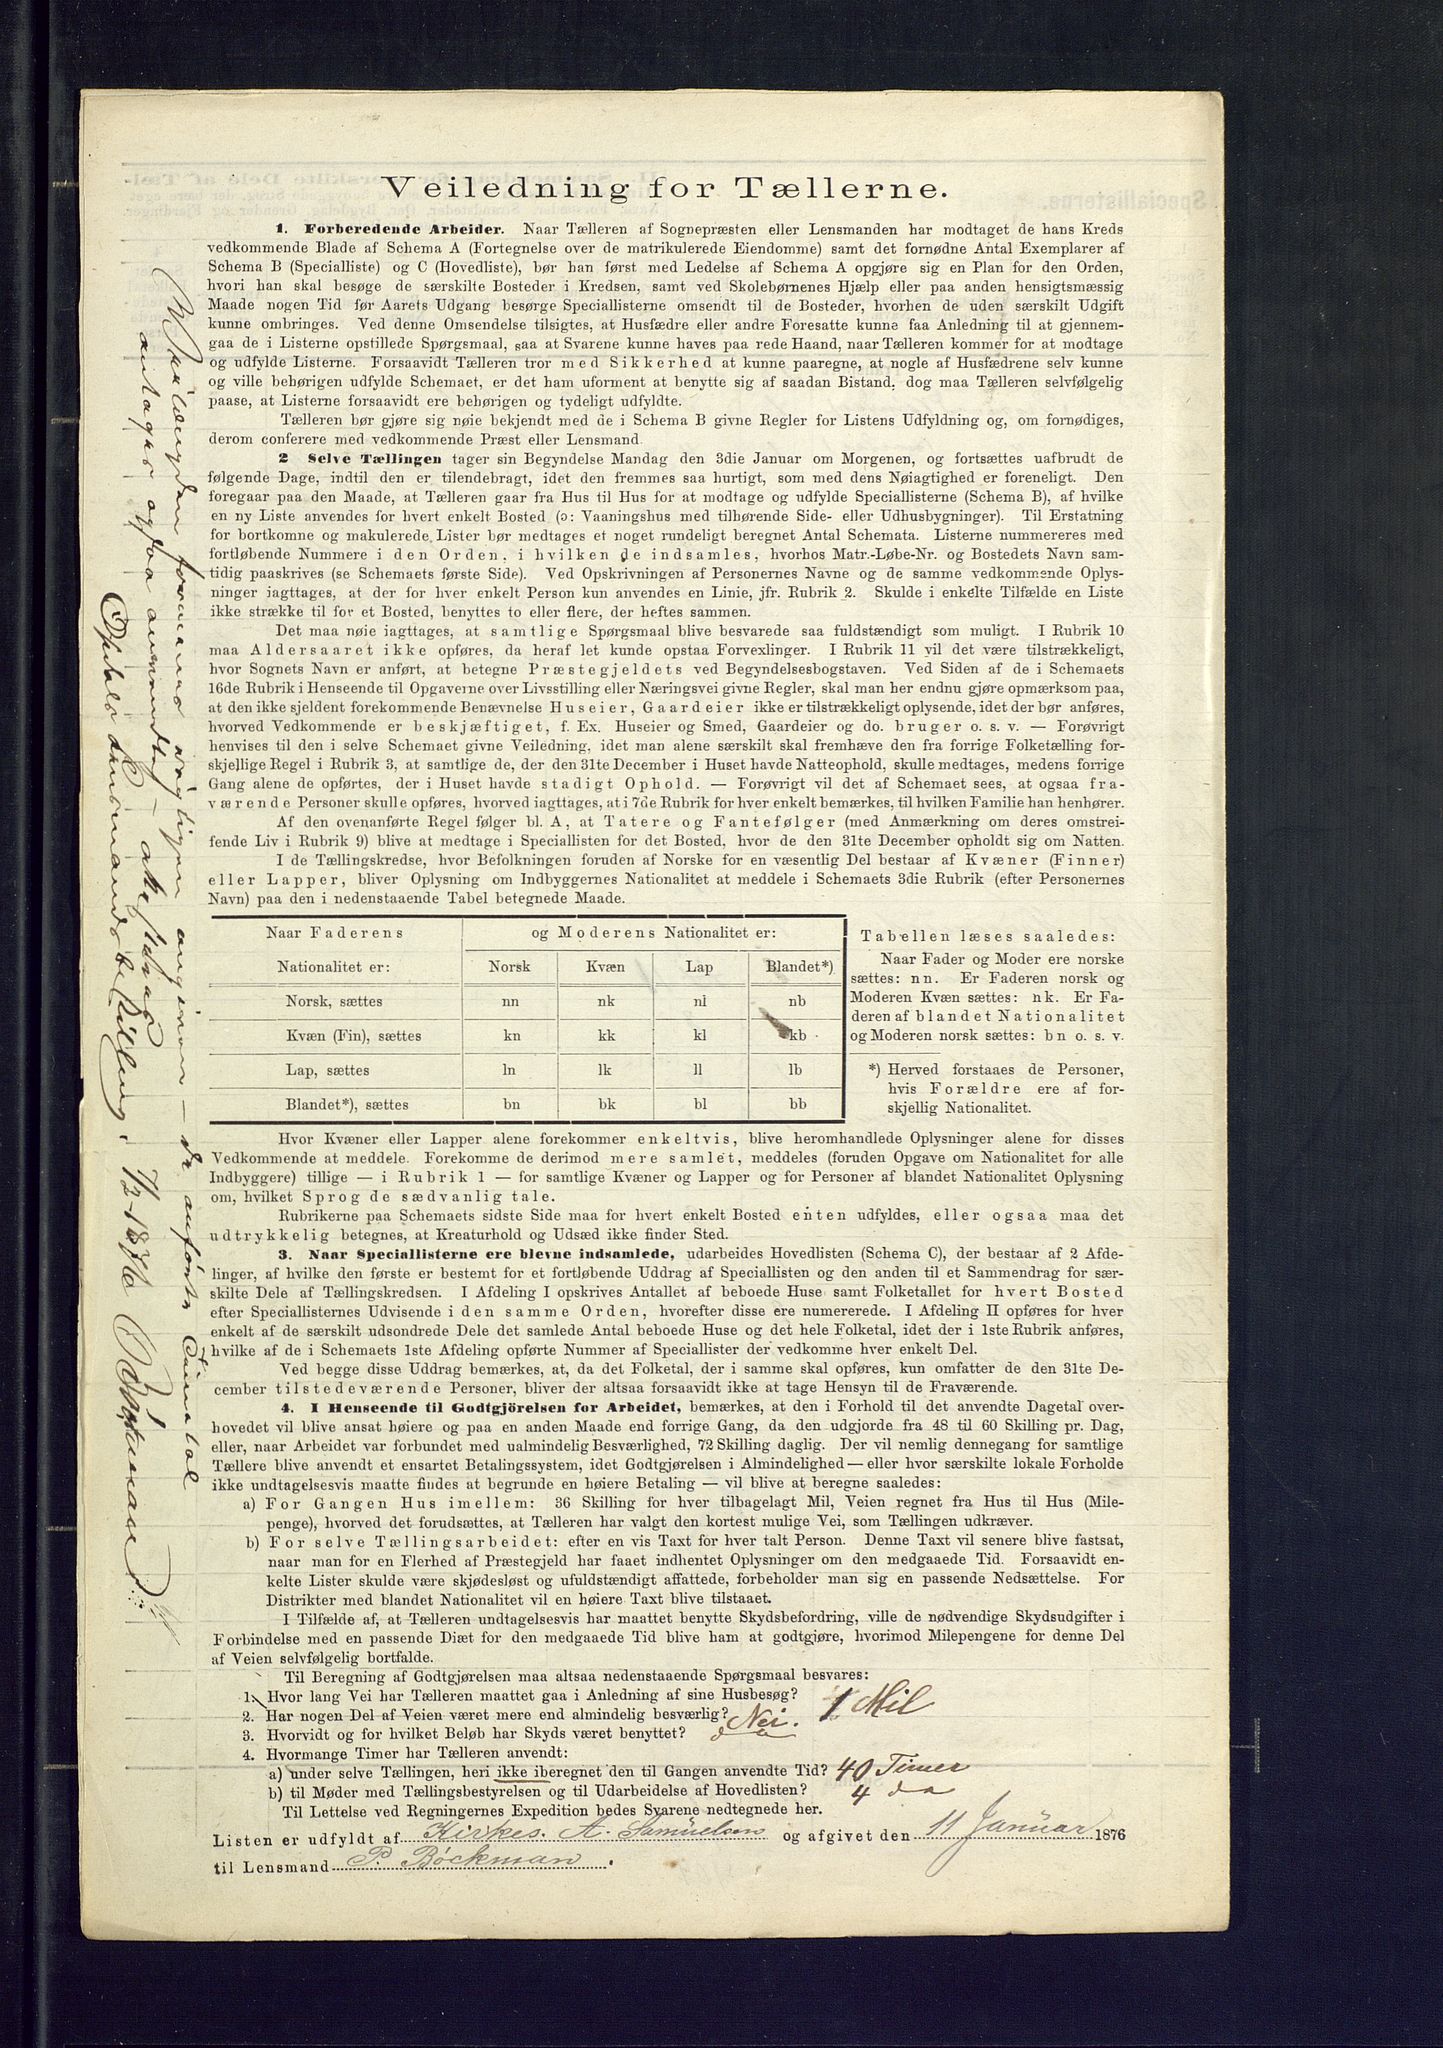 Veiledning for Tællerne.
1. Forberedende Arbeider. Naar Tælleren af Sognepræsten eller Lensmanden har modtaget de hans Kreds
vedkommende Blade af Schema A (Fortegnelse over de matrikulerede Eiendomme) samt det fornødne Antal Exemplarer af
Schema B (Specialliste) og C (Hovedliste), bør han først med Ledelse af Schema A opgjøre sig en Plan for den Orden,
hvori han skal besøge de særskilte Bosteder i Kredsen, samt ved Skolebørnenes Hjælp eller paa anden hensigtsmæssig
Maade nogen Tid før Aarets Udgang besørge Speciallisterne omsendt til de Bosteder, hvorhen de uden særskilt Udgift
kunne ombringes. Ved denne Omsendelse tilsigtes, at Husfædre eller andre Foresatte kunne faa Anledning til at gjennem-
gaa de i Listerne opstillede Spørgsmaal, saa at Svarene kunne haves paa rede Haand, naar Tælleren kommer for at modtage
og udfylde Listerne. Forsaavidt Tælleren tror med Sikkerhed at kunne paaregne, at nogle af Husfædrene selv kunne
og ville behørigen udfylde Schemaet, er det ham uforment at benytte sig af saadan Bistand, dog maa Tælleren selvfølgelig
paase, at Listerne forsaavidt ere behørigen og tydeligt udfyldte.
Tælleren bør gjøre sig nøie bekjendt med de i Schema B givne Regler for Listens Udfyldning og, om fornødiges,
derom conferere med vedkommende Præst eller Lensmand.
2 Selve Tællingen tager sin Begyndelse Mandag den 3die Januar om Morgenen, og fortsættes uafbrudt de
følgende Dage, indtil den er tilendebragt, idet den fremmes saa hurtigt, som med dens Nøiagtighed er foreneligt. Den
foregaar paa den Maade, at Tælleren gaar fra Hus til Hus for at modtage og udfylde Speciallisterne (Schema B), af hvilke
en ny Liste anvendes for hvert enkelt Bosted (ɔ: Vaaningshus med tilhørende Side- eller Udhusbygninger). Til Erstatning
for bortkomne og makulerede Lister bør medtages et noget rundeligt beregnet Antal Schemata. Listerne nummereres med
fortløbende Nummere i den Orden, i hvilken de indsamles, hvorhos Matr.-Løbe-Nr. og Bostedets Navn sam-
tidig paaskrives (se Schemaets første Side). Ved Opskrivningen af Personernes Navne og de samme vedkommende Oplys-
ninger iagttages, at der for hver enkelt Person kun anvendes en Linie, jfr. Rubrik 2. Skulde i enkelte Tilfælde en Liste
ikke strække til for et Bosted, benyttes to eller flere, der heftes sammen.
Det maa nøie iagttages, at samtlige Spørgsmaal blive besvarede saa fuldstændigt som muligt. I Rubrik 10
maa Aldersaaret ikke opføres, da heraf let kunde opstaa Forvexlinger. I Rubrik 11 vil det være tilstrækkeligt,
hvor Sognets Navn er anført, at betegne Præstegjeldets ved Begyndelsesbogstaven. Ved Siden af de i Schemaets
16de Rubrik i Henseende til Opgaverne over Livsstilling eller Næringsvei givne Regler, skal man her endnu gjøre opmærksom paa,
at den ikke sjeldent forekommende Benævnelse Huseier, Gaardeier ikke er tilstrækkeligt oplysende, idet der bør anføres,
hvorved Vedkommende er beskjæftiget, f. Ex. Huseier og Smed, Gaardeier og do. bruger o. s. v. — Forøvrigt
henvises til den i selve Schemaet givne Veiledning, idet man alene særskilt skal fremhæve den fra forrige Folketælling for-
skjellige Regel i Rubrik 3, at samtlige de, der den 31te December i Huset havde Natteophold, skulle medtages, medens forrige
Gang alene de opførtes, der i Huset havde stadigt Ophold. — Forøvrigt vil det af Schemaet sees, at ogsaa fra-
værende Personer skulle opføres, hvorved iagttages, at i 7de Rubrik for hver enkelt bemærkes, til hvilken Familie han henhører.
Af den ovenanførte Regel følger bl. A, at Tatere og Fantefølger (med Anmærkning om deres omstrei-
fende Liv i Rubrik 9) blive at medtage i Speciallisten for det Bosted, hvor de den 31te December opholdt sig om Natten.
I de Tællingskredse, hvor Befolkningen foruden af Norske for en væsentlig Del bestaar af Kvæner (Finner)
eller Lapper, bliver Oplysning om Indbyggernes Nationalitet at meddele i Schemaets 3die Rubrik (efter Personernes
Navn) paa den i nedenstaaende Tabel betegnede Maade.
Naar Faderens og Moderens Nationalitet er:
Nationalitet er: Norsk Kvæn Lap Blandet*)
Norsk, sættes nn nk nl nb
Kvæn (Fin), sættes kn kk kl kb
Lap, sættes ln lk ll lb
Blandet*), sættes bn bk bl bb
Tabellen læses saaledes:
Naar Fader og Moder ere norske
sættes: nn. Er Faderen norsk og
Moderen Kvæn sættes: nk. Er Fa-
deren af blandet Nationalitet
og Moderen norsk sættes: bn o. s. v.
*) Herved forstaaes de Personer,
hvis Forældre ere af for-
skjellig Nationalitet.
Hvor Kvæner eller Lapper alene forekommer enkeltvis, blive heromhandlede Oplysninger alene for disses
Vedkommende at meddele. Forekomme de derimod mere samlet, meddeles (foruden Opgave om Nationalitet for alle
Indbyggere) tillige — i Rubrik 1 — for samtlige Kvæner og Lapper og for Personer af blandet Nationalitet Oplysning
om, hvilket Sprog de sædvanlig tale.
Rubrikerne paa Schemaets sidste Side maa for hvert enkelt Bosted enten udfyldes, eller ogsaa maa det
udtrykkelig betegnes, at Kreaturhold og Udsæd ikke finder Sted.
3. Naar Speciallisterne ere blevne indsamlede, udarbeides Hovedlisten (Schema C), der bestaar af 2 Afde-
linger, af hvilke den første er bestemt for et fortløbende Uddrag af Speciallisten og den anden til et Sammendrag for sær-
skilte Dele af Tællingskredsen. I Afdeling I opskrives Antallet af beboede Huse samt Folketallet for hvert Bosted
efter Speciallisternes Udvisende i den samme Orden, hvorefter disse ere numererede. I Afdeling II opføres for hver
enkelt af de særskilt udsondrede Dele det samlede Antal beboede Huse og det hele Folketal, idet der i 1ste Rubrik anføres,
hvilke af de i Schemaets 1ste Afdeling opførte Nummer af Speciallister der vedkomme hver enkelt Del.
Ved begge disse Uddrag bemærkes, at, da det Folketal, der i samme skal opføres, kun omfatter de den 31te De-
cember tilstedeværende Personer, bliver der altsaa forsaavidt ikke at tage Hensyn til de Fraværende.
4. I Henseende til Godtgjörelsen for Arbeidet, bemærkes, at den i Forhold til det anvendte Dagetal over-
hovedet vil blive ansat høiere og paa en anden Maade end forrige Gang, da den udgjorde fra 48 til 60 Skilling pr. Dag,
eller, naar Arbeidet var forbundet med ualmindelig Besværlighed, 72 Skilling daglig. Der vil nemlig dennegang for samtlige
Tællere blive anvendt et ensartet Betalingssystem, idet Godtgjørelsen i Almindelighed — eller hvor særskilte lokale Forholde
ikke undtagelsesvis maatte findes at begrunde en høiere Betaling — vil blive at beregne saaledes:
a) For Gangen Hus imellem: 36 Skilling for hver tilbagelagt Mil, Veien regnet fra Hus til Hus (Mile-
penge), hvorved det forudsættes, at Tælleren har valgt den kortest mulige Vei, som Tællingen udkræver.
b) For selve Tællingsarbeidet: efter en vis Taxt for hver talt Person. Denne Taxt vil senere blive fastsat,
naar man for en Flerhed af Præstegjeld har faaet indhentet Oplysninger om den medgaaede Tid. Forsaavidt en-
kelte Lister skulde være skjødesløst og ufuldstændigt affattede, forbeholder man sig en passende Nedsættelse. For
Distrikter med blandet Nationalitet vil en høiere Taxt blive tilstaaet.
I Tilfælde af, at Tælleren undtagelsesvis har maattet benytte Skydsbefordring, ville de nødvendige Skydsudgifter i
Forbindelse med en passende Diæt for den medgaaede Tid blive ham at godtgjøre, hvorimod Milepengene for denne Del
af Veien selvfølgelig bortfalde.
Til Beregning af Godtgjørelsen maa altsaa nedenstaaende Spørgsmaal besvares:
1. Hvor lang Vei har Tælleren maattet gaa i Anledning af sine Husbesøg? 1 Mil
2. Har nogen Del af Veien været mere end almindelig besværlig? Nei.
3. Hvorvidt og for hvilket Beløb har Skyds været benyttet?
4. Hvormange Timer har Tælleren anvendt:
a) under selve Tællingen, heri ikke iberegnet den til Gangen anvendte Tid? 40 Timer
b) til Møder med Tællingsbestyrelsen og til Udarbeidelse af Hovedlisten? 4 do
Til Lettelse ved Regningernes Expedition bedes Svarene nedtegnede her.
Listen er udfyldt af Kirkes. A. Samuelsen og afgivet den 11 Januar 1876
til Lensmand P. Böckman.
Veilængden forma rigtigen angiven — de anførte Timetal
antages ogsaa — attesterer
Lensmandsbestilling, 7/2-1876 Böckman